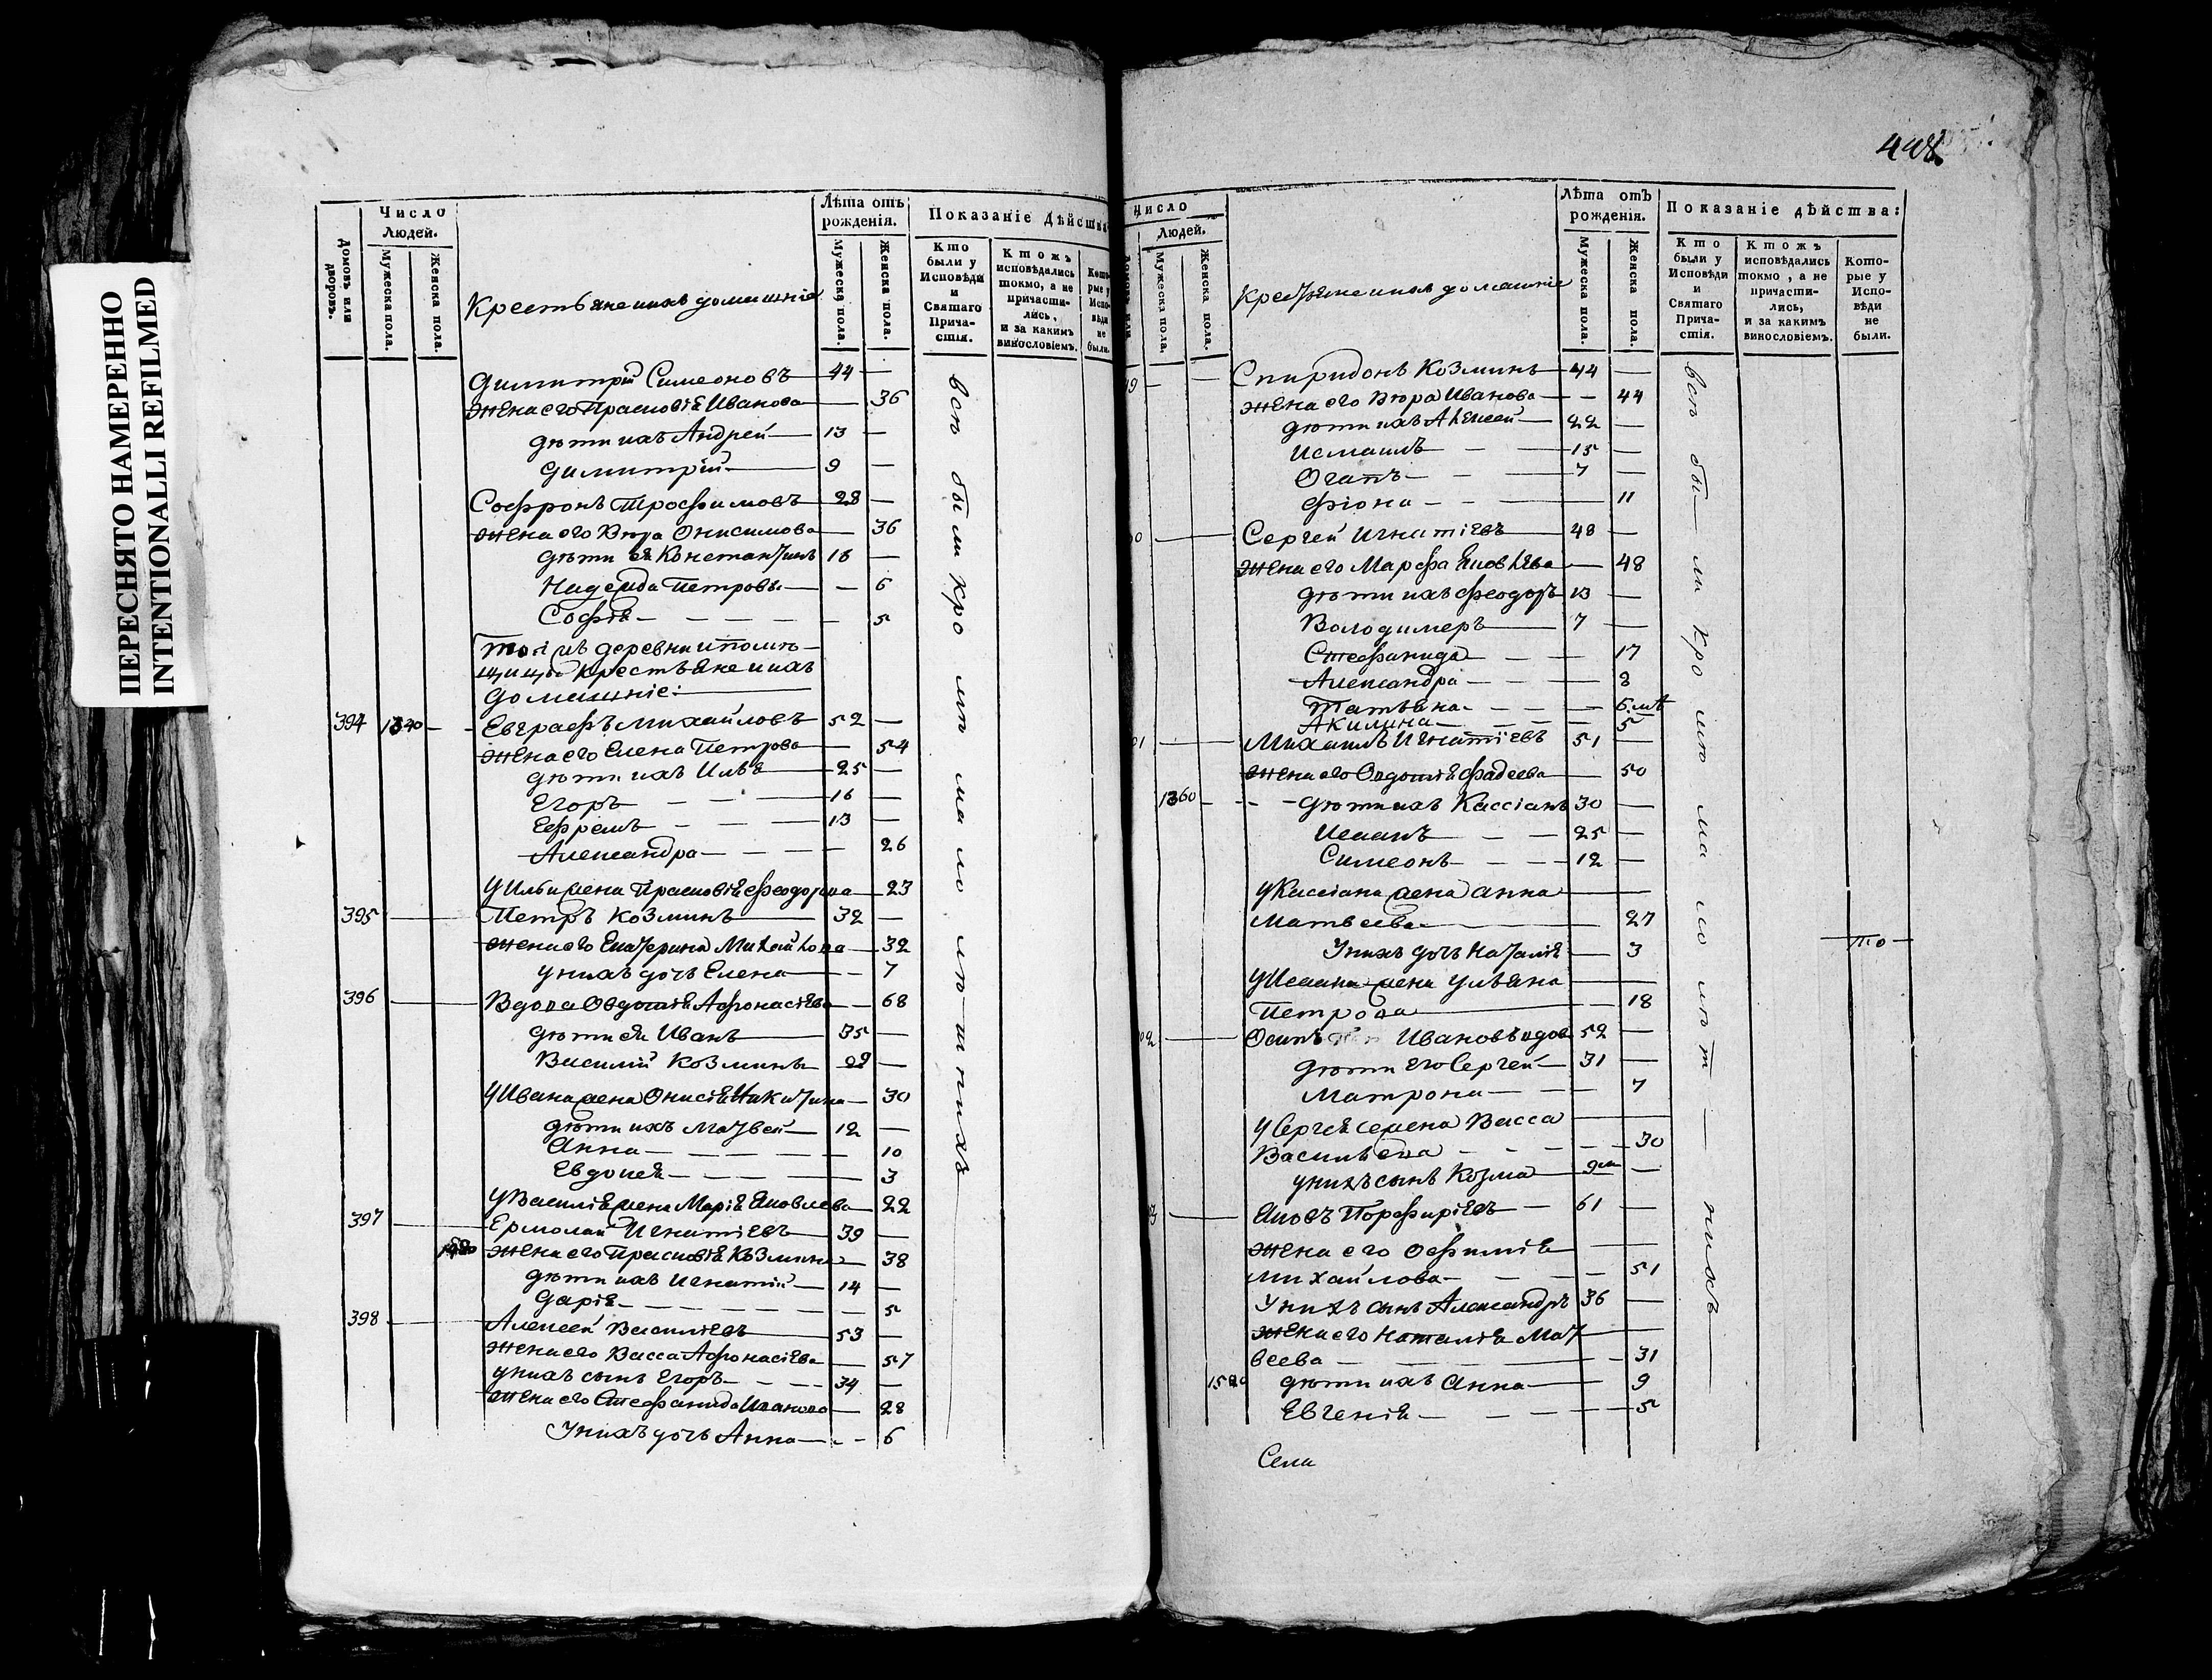 ПЕРЕСНЯТО НАМЕРЕННО
INTENTIONALLI REFILMED
Домовъ или дворовъ.
Число Людей.
Мужеска пола.
Женска пола.
Крестьяне ихъ домашніе
Лѣта отъ рожденія.
Мужеска пола.
Женска пола.
Показаніе дѣйства
Кто были у Исповѣди и Святаго Прича-стія.
Ктожъ исповѣдались токмо, а не причасти-лись, и за какимъ винословіемъ.
Кото-рые у Испо-вѣди не были.
Димитрій Симеоновъ 44 —
жена его Прасковія Иванова — 36
дѣти ихъ Андрей 13 —
Димитрій 9 —
Софронъ Трофимовъ 28 —
жена его Вѣра Онисимова — 36
дѣти ея Константинъ 16 —
Надежда Петровы — 6
Софія — 5
деревни помѣ-
щицы крестьяне ихъ
домашніе:
394 1340 Евграфъ Михайловъ 52 —
жена его Елена Петрова — 54
дѣти ихъ Илья 25 —
Егоръ 16 —
Ефремъ 13 —
Александра — 26
У Ильи жена Прасковія Феодорова — 23
395 Петръ Козминъ 32 —
жена его Екатерина Михайлова — 32
у нихъ дочь Елена — 7
396 Вдова Овдотія Афонасіева — 68
дѣти ея Иванъ 35 —
Василій Козмины 22 —
У Ивана жена Онисія Никитина — 30
дѣти ихъ Матвей 12 —
Анна — 10
Евдокея — 3
У Василія жена Марія Яковлева — 22
397 Ермолай Игнатіевъ 39 —
жена его Прасковія Козмина — 38
дѣти ихъ Игнатій 14 —
Дарія — 5
398 Алексей Василіевъ 53 —
жена его Васса Афонасіева — 57
у нихъ сынъ Егоръ 34 —
жена его Стефанида Иванова — 28
У нихъ дочь Анна — 6
всѣ были кромѣ малолѣтнихъ
448
Число
Людей.
Мужеска пола.
Женска пола.
Крестьяне ихъ домашніе
Лѣта отъ рожденія.
Мужеска пола.
Женска пола.
Показаніе дѣйства:
Кто были у Исповѣди и Святаго Прича-стія.
Ктожъ исповѣдались токмо, а не причасти-лись, и за какимъ винословіемъ.
Кото-рые у Испо-вѣди не были.
Спиридонъ Козминъ 44 —
жена его Вѣра Иванова — 44
дѣти ихъ Алексей 22 —
Исмаилъ 15 —
Огапъ 7 —
Фіона — 11
Сергей Игнатіевъ 48 —
жена его Марфа Яковлева — 48
дѣти ихъ Феодоръ 13 —
Володимеръ 7 —
Стефанида — 17
Александра — 8
Татьяна — 6.мѣ
Акилина — 5
Михаилъ Игнатіевъ 51 —
жена его Овдотія Фадеева — 50
1360 дѣти ихъ Кассіанъ 30 —
Исаакъ 25 —
Симеонъ 12 —
У Кассіана жена Анна
Матвеева — 27
У нихъ дочь Наталія — 3
У Исаака жена Ульяна
Петрова — 18
Осипъ Ивановъ вдов 52 —
Дѣти его Сергей 31 —
Матрона — 7
У Сергея жена Васса
Васильева — 30
у нихъ сынъ Козма —
Яковъ Порфиріевъ 61 —
жена его Офимія
Михайлова — 51
У нихъ сынъ Александръ 36 —
жена его Наталія Мат
веева — 31
дѣти ихъ Анна — 9
Евгенія — 5
всѣ были кромѣ малолѣтнихъ
то
Села